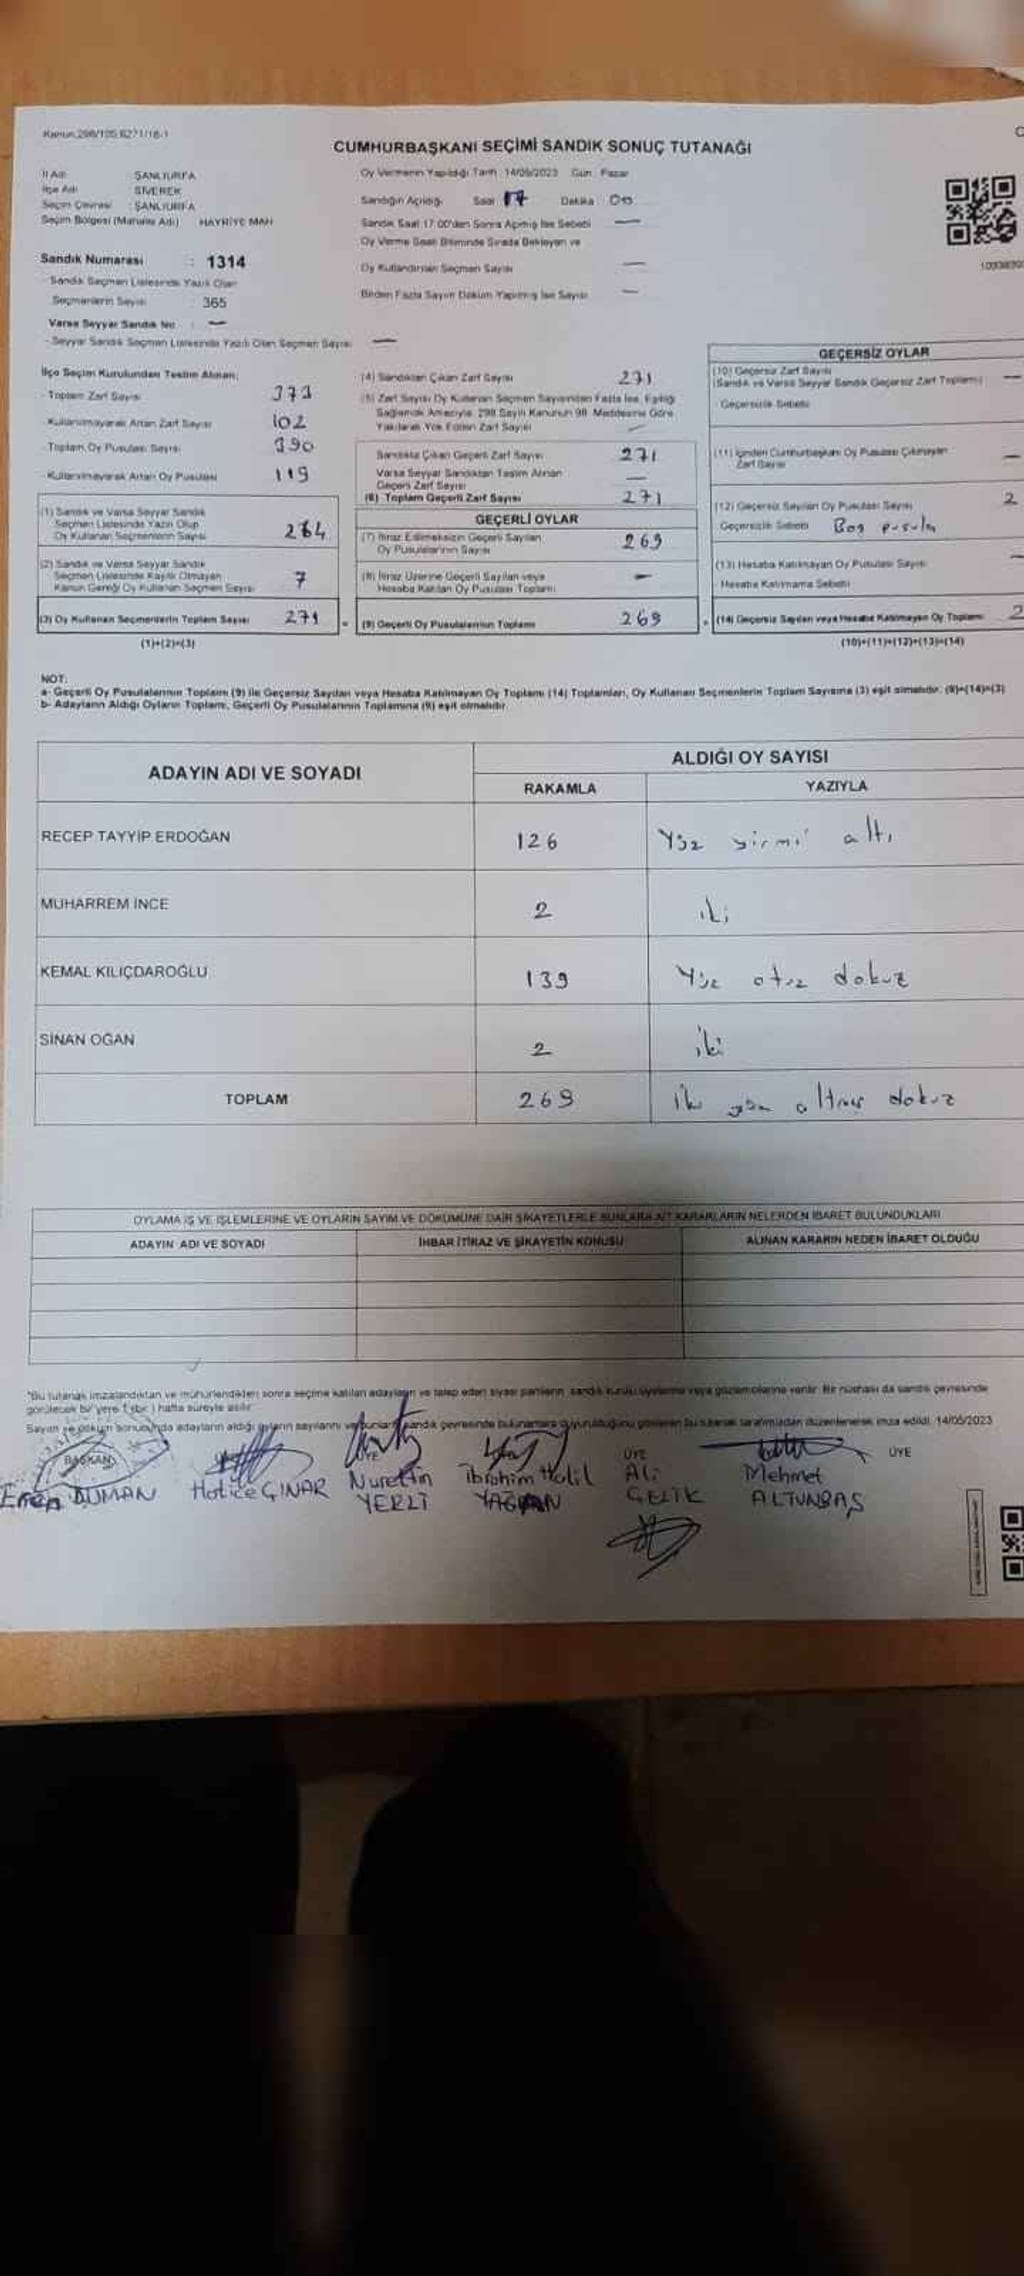 Kanun:298/105,6271/16-1
CUMHURBAŞKANI SEÇİMİ SANDIK SONUÇ TUTANAĞI
İl Adı : ŞANLIURFA
İlçe Adı : SİVEREK
Seçim Çevresi : ŞANLIURFA
Seçim Bölgesi (Mahalle Adı) HAYRİYE MAH
Sandık Numarası : 1314
- Sandık Seçmen Listesinde Yazılı Olan
Seçmenlerin Sayısı : 365
Varsa Seyyar Sandık No : —
- Seyyar Sandık Seçmen Listesinde Yazılı Olan Seçmen Sayısı —
Oy Vermenin Yapıldığı Tarih 14/05/2023 Gün Pazar
Sandığın Açıldığı Saat 17 Dakika 00
Sandık Saat 17.00'den Sonra Açılmış İse Sebebi —
Oy Verme Saati Bitiminde Sırada Bekleyen ve
Oy Kullandırılan Seçmen Sayısı —
Birden Fazla Sayım Döküm Yapılmış İse Sayısı —
İlçe Seçim Kurulundan Teslim Alınan;
- Toplam Zarf Sayısı 373
- Kullanılmayarak Artan Zarf Sayısı 102
- Toplam Oy Pusulası Sayısı 390
- Kullanılmayarak Artan Oy Pusulası 119
(1) Sandık ve Varsa Seyyar Sandık
Seçmen Listesinde Yazılı Olup
Oy Kullanan Seçmenlerin Sayısı 264
(2) Sandık ve Varsa Seyyar Sandık
Seçmen Listesinde Kayıtlı Olmayan
Kanun Gereği Oy Kullanan Seçmen Sayısı 7
(3) Oy Kullanan Seçmenlerin Toplam Sayısı 271
(1)+(2)=(3)
(4) Sandıktan Çıkan Zarf Sayısı 271
(5) Zarf Sayısı Oy Kullanan Seçmen Sayısından Fazla İse, Eşitliği
Sağlamak Amacıyla, 298 Sayılı Kanunun 98. Maddesine Göre
Yakılarak Yok Edilen Zarf Sayısı —
Sandıkta Çıkan Geçerli Zarf Sayısı 271
Varsa Seyyar Sandıktan Teslim Alınan
Geçerli Zarf Sayısı —
(6) Toplam Geçerli Zarf Sayısı 271
GEÇERLİ OYLAR
(7) İtiraz Edilmeksizin Geçerli Sayılan
Oy Pusulalarının Sayısı 269
(8) İtiraz Üzerine Geçerli Sayılan veya
Hesaba Katılan Oy Pusulası Toplamı —
(9) Geçerli Oy Pusulalarının Toplamı 269
GEÇERSİZ OYLAR
(10) Geçersiz Zarf Sayısı
(Sandık ve Varsa Seyyar Sandık Geçersiz Zarf Toplamı) —
Geçersizlik Sebebi
(11) İçinden Cumhurbaşkanı Oy Pusulası Çıkmayan
Zarf Sayısı —
(12) Geçersiz Sayılan Oy Pusulası Sayısı 2
Geçersizlik Sebebi Boş pusula
(13) Hesaba Katılmayan Oy Pusulası Sayısı —
Hesaba Katılmama Sebebi
(14) Geçersiz Sayılan veya Hesaba Katılmayan Oy Toplamı 2
(10)+(11)+(12)+(13)=(14)
NOT:
a- Geçerli Oy Pusulalarının Toplamı (9) ile Geçersiz Sayılan veya Hesaba Katılmayan Oy Toplamı (14) Toplamları, Oy Kullanan Seçmenlerin Toplam Sayısına (3) eşit olmalıdır. (9)+(14)=(3)
b- Adayların Aldığı Oyların Toplamı, Geçerli Oy Pusulalarının Toplamına (9) eşit olmalıdır.
ADAYIN ADI VE SOYADI
ALDIĞI OY SAYISI
RAKAMLA YAZIYLA
RECEP TAYYİP ERDOĞAN 126 Yüz yirmi altı
MUHARREM İNCE 2 iki
KEMAL KILIÇDAROĞLU 139 Yüz otuz dokuz
SİNAN OĞAN 2 iki
TOPLAM 269 iki yüz altmış dokuz
OYLAMA İŞ VE İŞLEMLERİNE VE OYLARIN SAYIM VE DÖKÜMÜNE DAİR ŞİKAYETLERLE BUNLARA AİT KARARLARIN NELERDEN İBARET BULUNDUKLARI
ADAYIN ADI VE SOYADI İHBAR İTİRAZ VE ŞİKAYETİN KONUSU ALINAN KARARIN NEDEN İBARET OLDUĞU
*Bu tutanak imzalandıktan ve mühürlendikten sonra seçime katılan adayların ve talep eden siyasi partilerin, sandık kurulu üyelerine veya gözlemcilerine verilir. Bir nüshası da sandık çevresinde
görülecek bir yere 1 (bir) hafta süreyle asılır.
Sayım ve döküm sonucunda adayların aldığı oyların sayılarını ve bunların sandık çevresinde bulunanlara duyurulduğunu gösteren bu tutanak tarafımızdan düzenlenerek imza edildi. 14/05/2023
BAŞKAN ÜYE ÜYE ÜYE
DUMAN Hatice ÇINAR Nurettin YERLİ İbrahim Halil Ali ÇELİK Mehmet ALTUNBAŞ